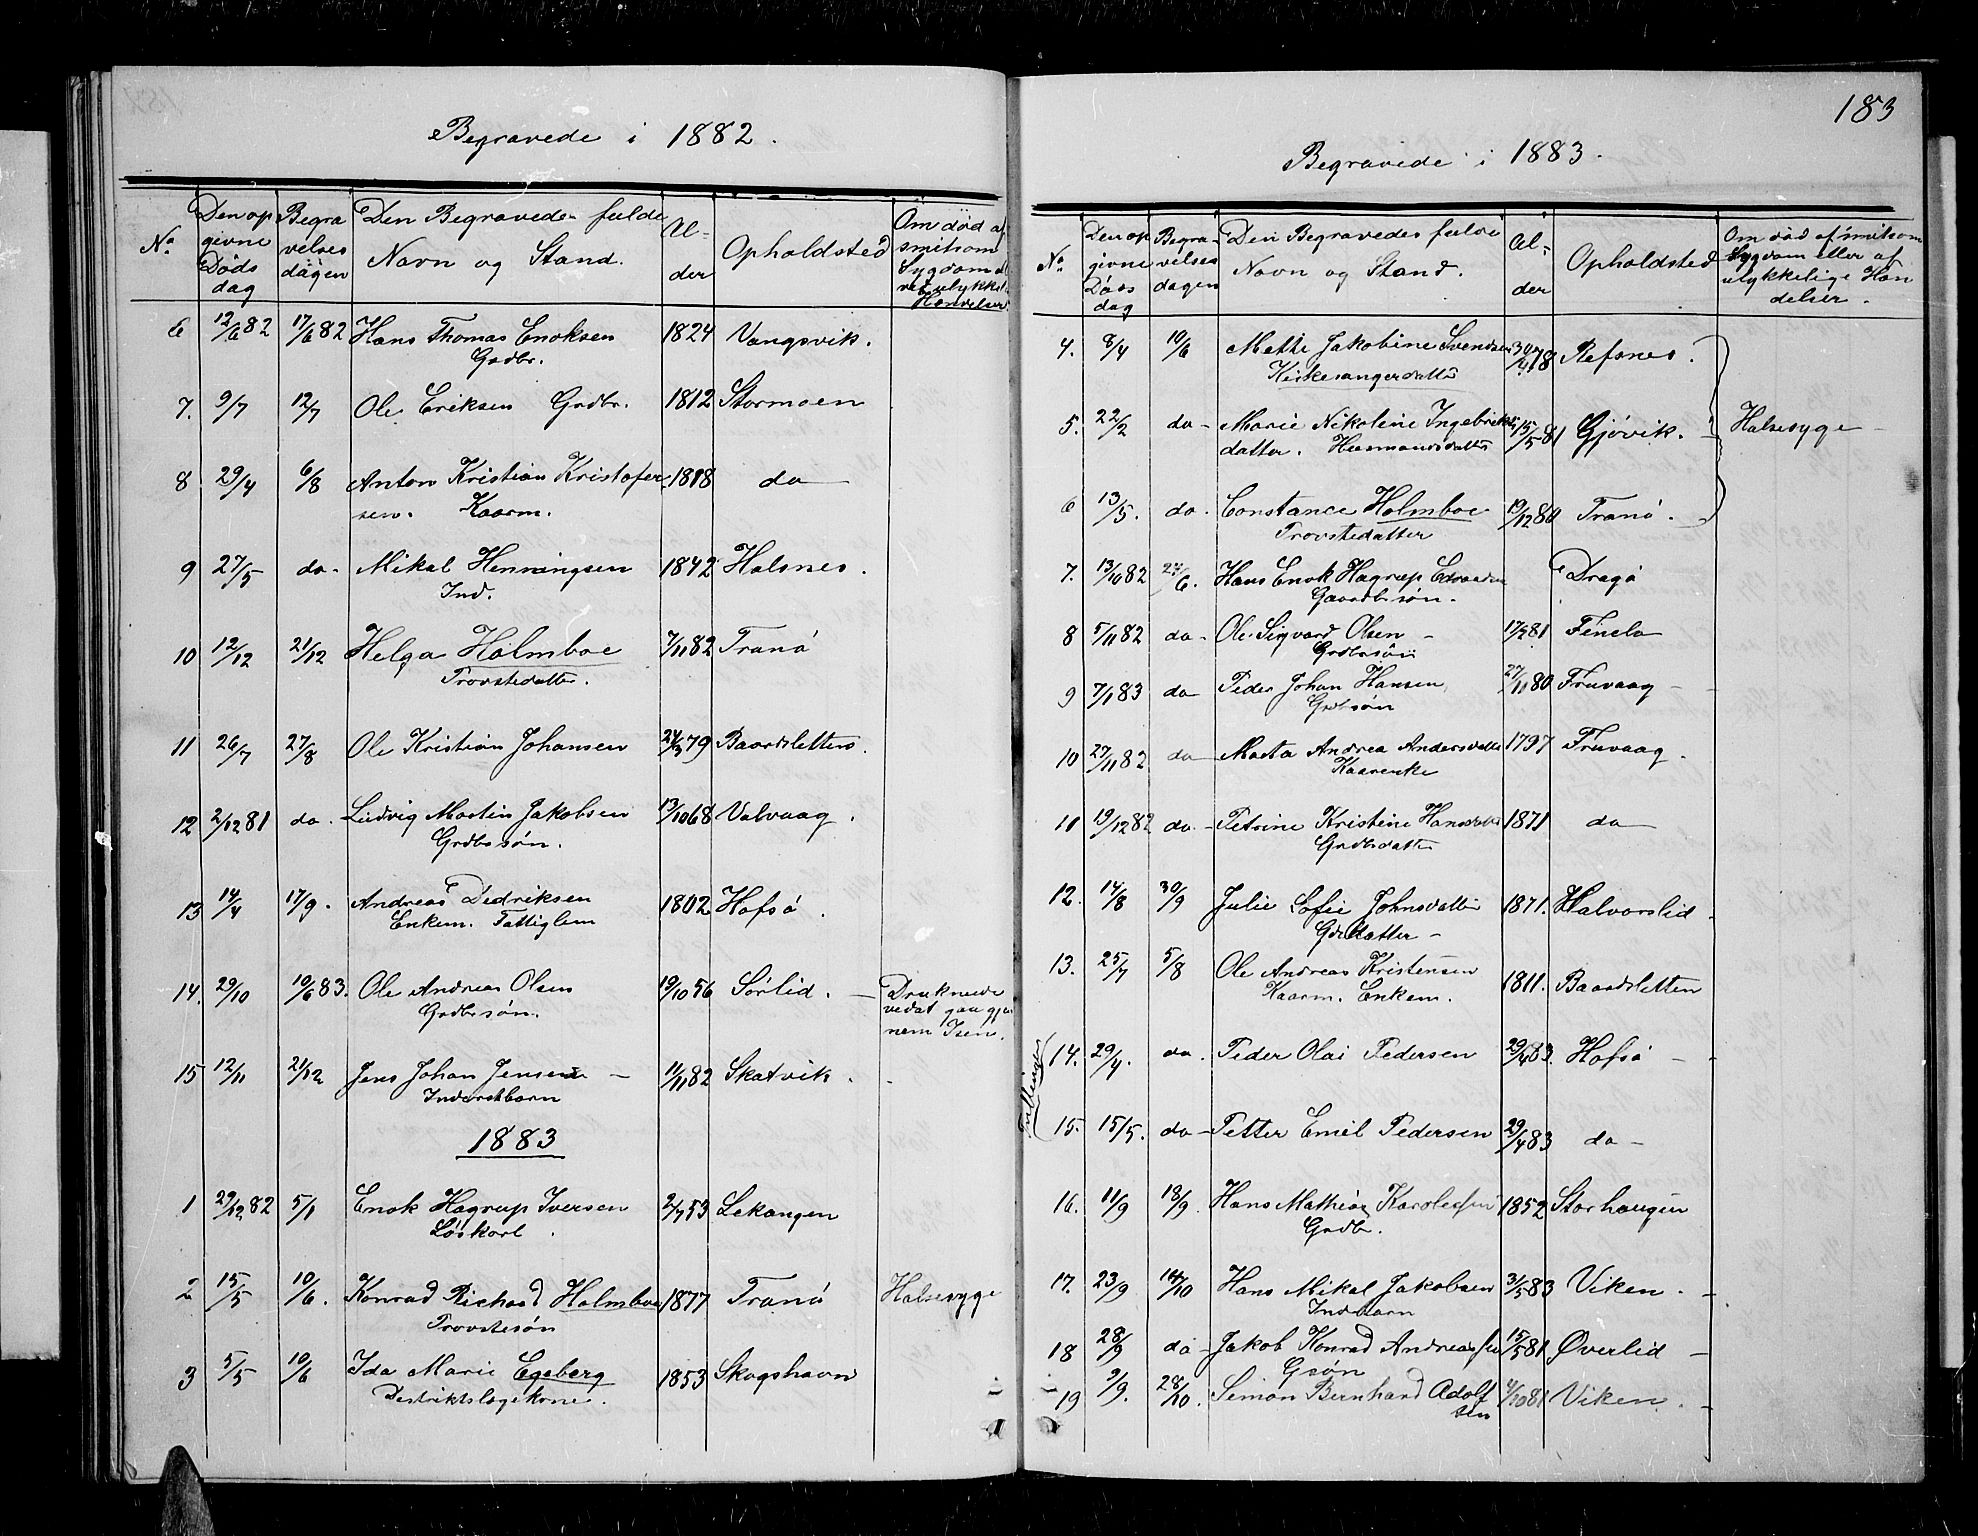 Begravede i 1882.
No. Den opgivne Dødsdag Begravelsesdagen Den Begravedes fulde Navn og Stand. Alder Opholdsted Om død af smitsom Sygdom
6 12/6 82 17/6 82 Hans Thomas Enoksen 1824 Vangsvik.
Grdbr.
7. 9/7 12/7 Ole Eriksen Grdbr. 1812 Stormoen
8 29/4 6/8 Anton Kristian Kristofer 1818 do
sen. Kaarm.
9 27/5 do- Mikal Henningsen 1842 Halsnes.
Ind.
10 12/12 21/12 Helga Holmboe 7/11 82 Tranö
Provstedatter.
11 26/7 27/8 Ole Kristian Johansen 79 Baardsletten.
12 2/12 81 do. Ludvig Martin Jakobsen 13/10 68 Valvaag.
Grdbssøn.
13 14/4 17/9. Andreas Didriksen 1802 Hofsö.
Enkem. Fattiglem
14. 29/10 10/6 83. Ole Andreas Olsen 19/10 56 Sörlid. — Druknede
Grdbrsøn. vedat gaa gjen
nem Isen.
15 12/11 21/12 Jens Johan Jensen — 11/11 82 Skatvik.
Inderstbarn
1883
1 29/12 82 5/1 Enok Hagrup Iversen 2/7 53 Lekangen
Løskarl.
2 15/5 10/6. Konrad Richard Holmboe 1877 Tranö Halsesyge
Provstesøn
3 5/5 10/6 Ida Marie Egeberg 1853 Skogshavn
Destriktslægekone.
183
Begravede i 1883.
No. Den opgivne Døds dag Begravelsesdagen Den Begravedes fulde Navn og Stand. Alder Opholdsted Om død af smitsom Sygdom eller af ulykkelige Hændelser.
4. 8/4 10/6 Mette Jakobine Svendsen 78 Refsnes.
Kirkesangerdatter
5. 22/2 do- Marie Nikoline Ingebrikt 15/5 81 Gjövik. Halsesyge-
datter. Husmandsdatter
6 13/5. do. Constance Holmboe 19/12 80 Tranö.
Provstedatter
7. 13/10 82 24/6. Hans Enok Hagrup Edvardsen Dragö
Gaardbrsön.
8 5/11 82 do- Ole Sigvard Olsen - 81 Finela
Grdbrsön
9 7/1 83 do Peder Johan Hansen 27/11 80 Fruvaag -
Grdbsøn
10 27/11 82 do Marta Andrea Andersdatter 1797 Fruvaag.
Kaarenke
11 19/12 82 do- Petrine Kristine Hansdatter 1871 do
Grdbsdatter
12. 14/8 30/9 Julie Sofie Johnsdatter 1871. Halvarslid.
Grdbdatter -
13. 25/7 5/8 Ole Andreas Kristensen 1811. Baardsletten
Kaarm. Enkem.
Tvillinger
14. 29/4. do. Peder Olai Pedersen 29/4 83. Hofsö -
15. 15/5. do- Petter Emil Pedersen 29/4 83 do-
16. 11/9 18/9. Hans Mathias Karolussen 1852 Storhaugen
Grdbr.
17. 23/9 14/10 Hans Mikal Jakobsen 31/5 83 Viken. -
Indbarn
18 28/9 do- Jakob Konrad Andreassen 15/5 81 Øverlid -
Gsøn
19 9/9. 28/10. Simon Bernhard Adolf 4/10 81 Viken. -
sen